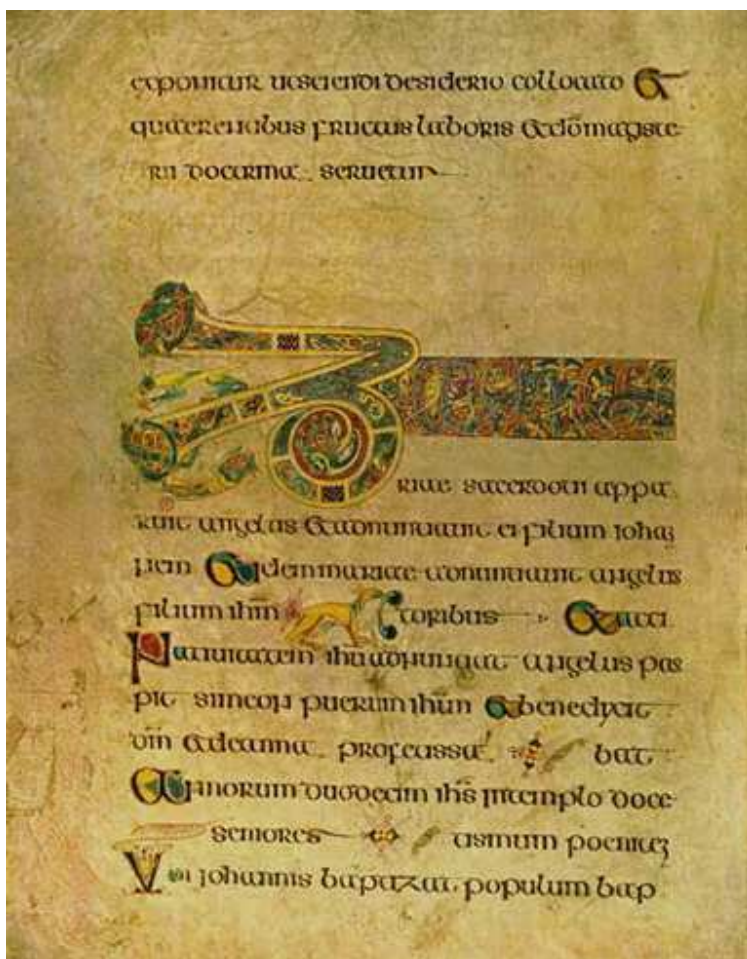 exponitur ut sciendi desiderio collocato et
quaerentibus fructus laboris et dō magiste
rii doctrina seruetur
Zacha
riae sacerdoti appa
ruit angelus et adnuntiauit ei filium ioha
nem Eidem mariae adnuntiauit angelus
filium ihm toribus Et acci
Natiuitatem ihu adnuntiat angelus pas
pit simeon puerum ihm et benedixit
dm et de anna profetissa bat
Annorum duodecim ihs in templo doce
seniores tismum
Ubi iohannis baptizat populum bap